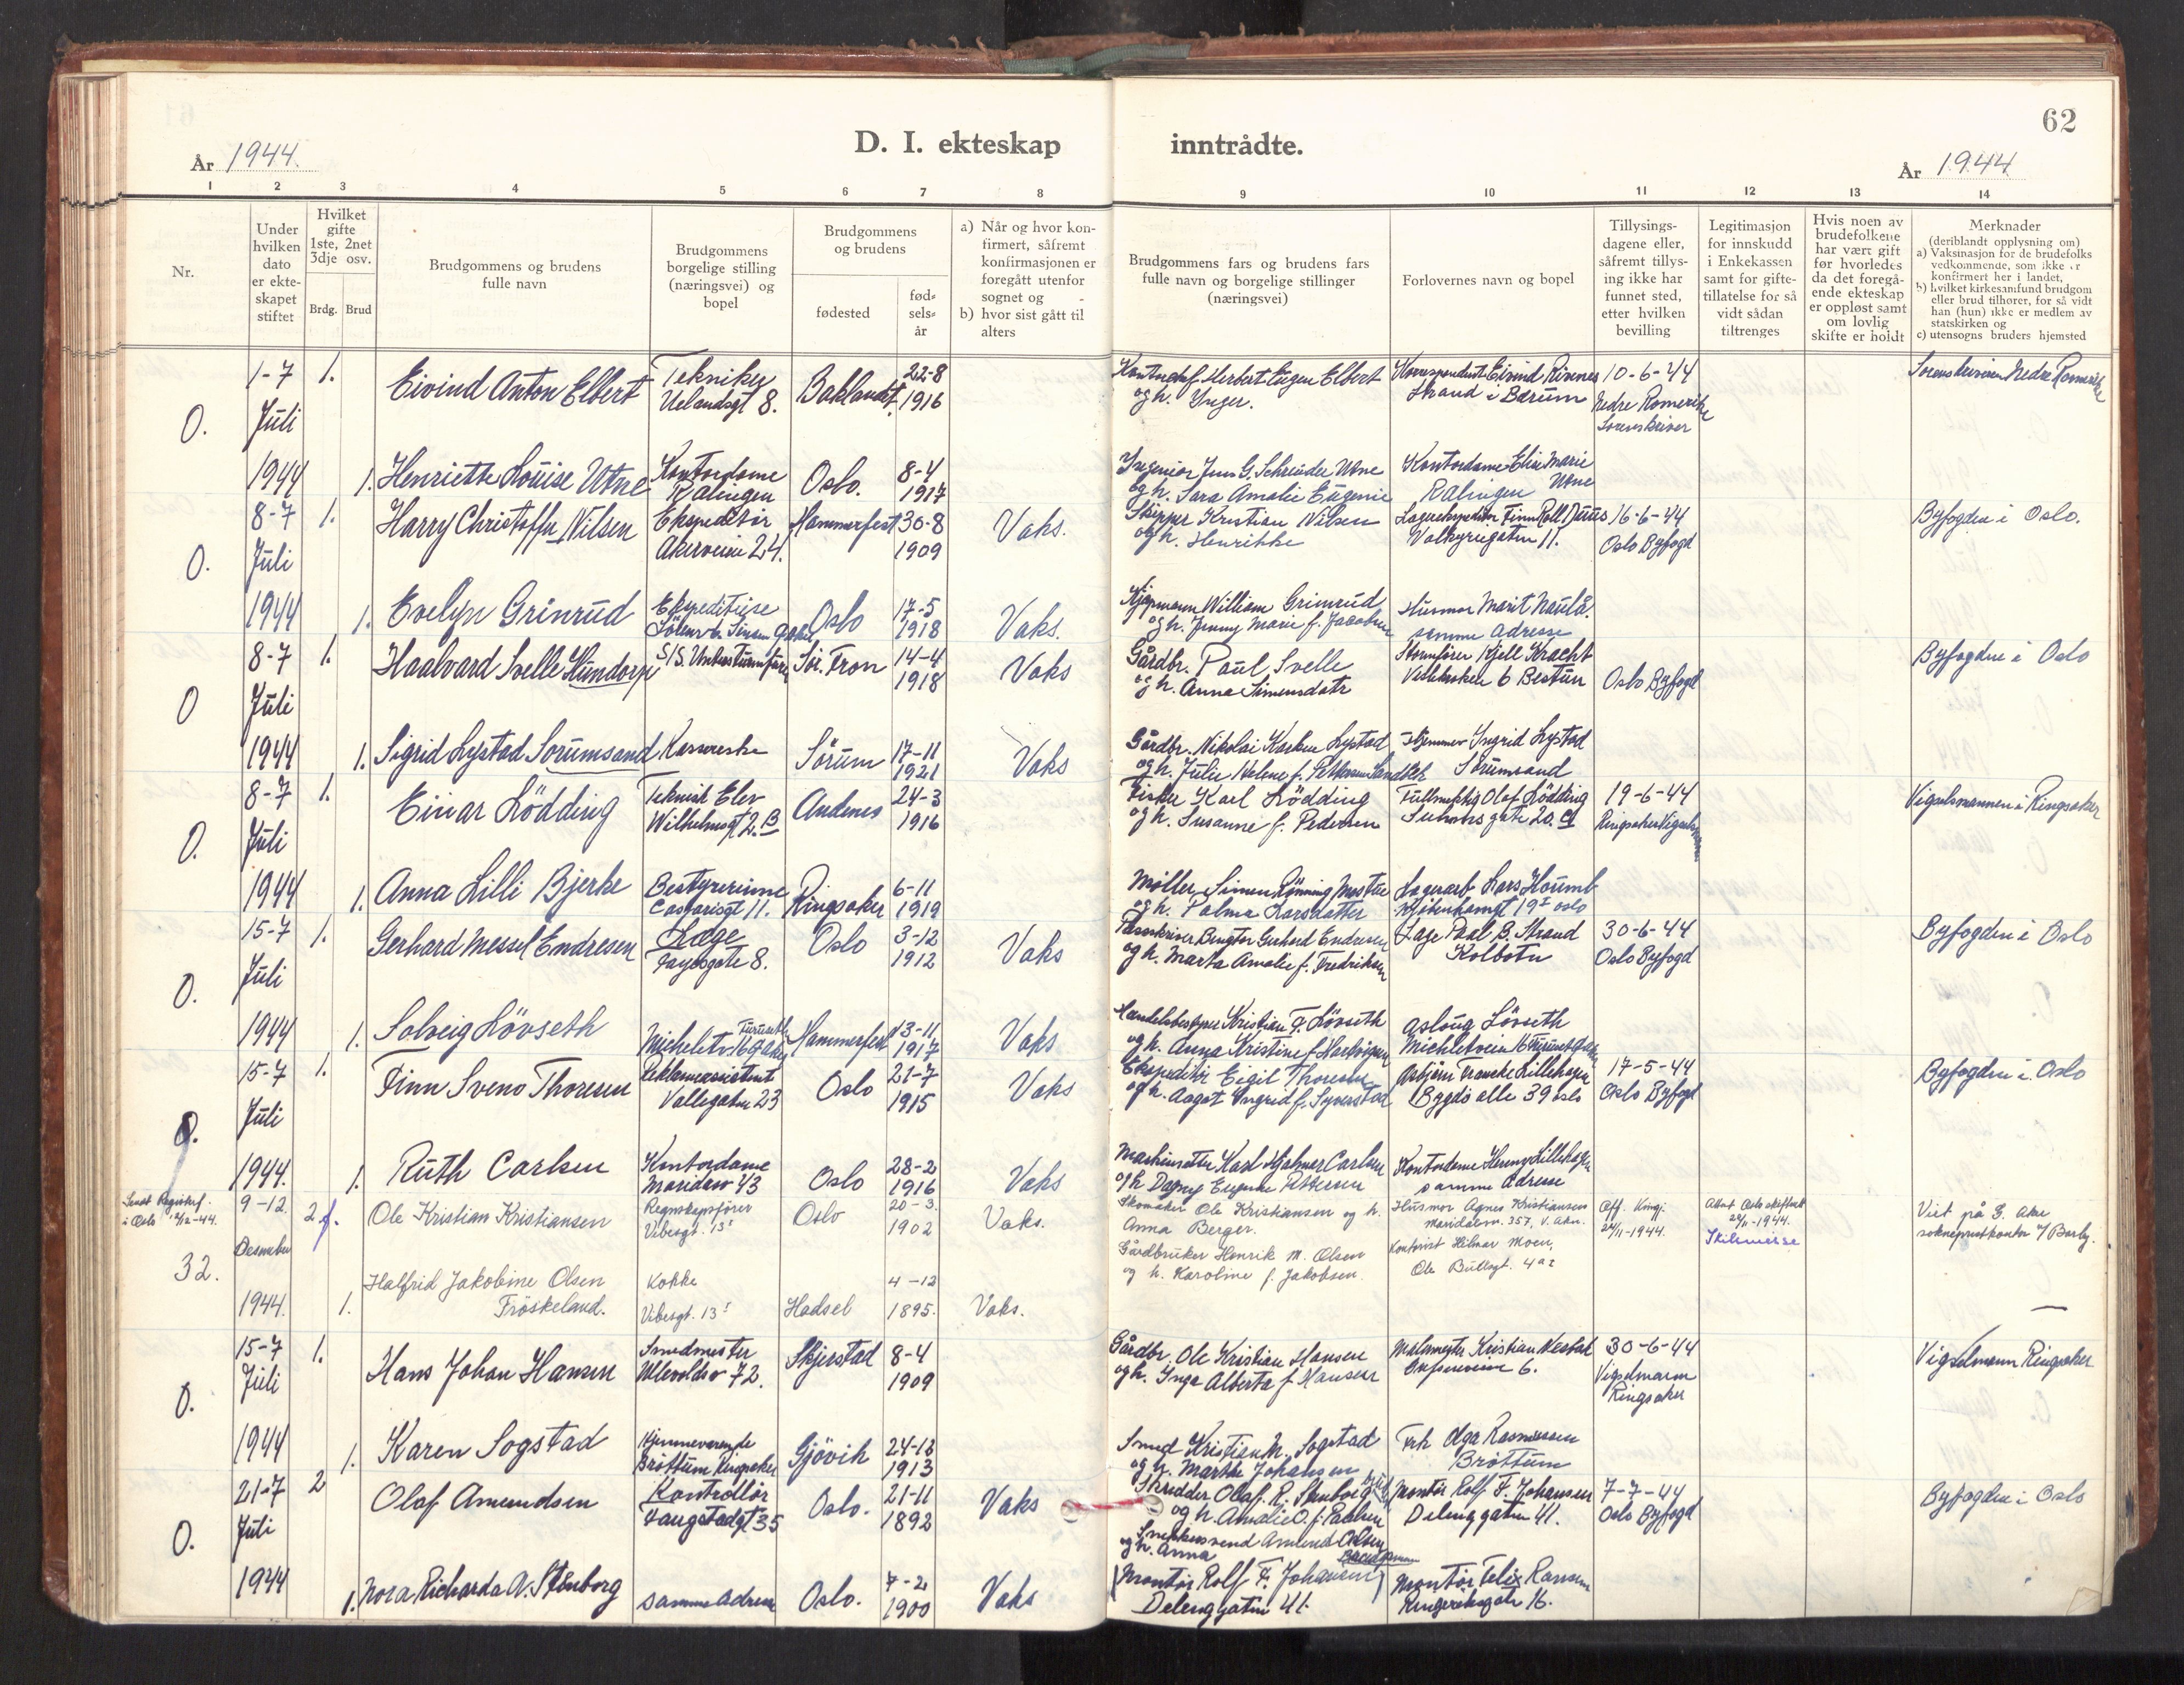 62
År 1944.
D. I. ekteskap inntrådte.
År 1944
1 2 3 4 5 6 7 8 9 10 11 12 13 14
Nr.
Under hvilken dato er ekte-skapet stiftet
Hvilket gifte 1ste, 2net 3dje osv.
Brdg. Brud
Brudgommens og brudens fulle navn
Brudgommens borgelige stilling (næringsvei) og bopel
Brudgommens og brudens
fødested
fød-sels-år
a) Når og hvor kon-firmert, såfremt konfirmasjonen er foregått utenfor sognet og
b) hvor sist gått til alters
Brudgommens fars og brudens fars fulle navn og borgelige stillinger (næringsvei)
Forlovernes navn og bopel
Tillysings-dagene eller, såfremt tillys-ing ikke har funnet sted, etter hvilken bevilling
Legitimasjon for innskudd i Enkekassen samt for gifte-tillatelse for så vidt sådan tiltrenges
Hvis noen av brudefolkene har vært gift før hvorledes da det foregå-ende ekteskap er oppløst samt om lovlig skifte er holdt
Merknader
(deriblandt opplysning om)
a) Vaksinasjon for de brudefolks vedkommende, som ikke er konfirmert her i landet,
b) hvilket kirkesamfund brudgom eller brud tilhører, for så vidt han (hun) ikke er medlem av statskirken og
c) utensogns bruders hjemsted
O. 1-7 Juli 1944
1. Eivind Anton Elbert
Tekniker
Uelandsgt 8.
Baklandet
22-8
1916
Herbert Eugen Elbert
og h. Inger.
Korrespondent Eivind Rivenes
Strand i Bærum
10-6-44
Nedre Romerike
Sorenskriver
Sorenskriveren Nedre Romerike
1. Henriette Louise Utne
Kontordame
Rælingen
Oslo.
8-4
1917
Ingeniør Jens G. Schreuder Utne
og h. Sara Amalie Eugenie
Kontordame Elise Marie Utne
Rælingen
O. 8-7 Juli 1944
1. Harry Christoffer Nilsen
Ekspeditør
Akerveien 24.
Hammerfest
30-8
1909
Vaks.
Skipper Kristian Nilsen
og h. Henrikke
Valkyriegaten 11.
16-6-44
Oslo Byfogd
Byfogden i Oslo.
1. Evelyn Grinrud
Ekspeditrise
Oslo
17-5
1918
Vaks.
Kjøpmann William Grimrud
og h. Jenny Marie f. Jacobsen
Husmor Marit Naulå.
samme adresse
O 8-7 Juli 1944
1. Haalvard Svelle Hundorp
S/S. Untersturmfürer
Sør. Fron
14-4
1918
Vaks
Gårdbr. Paul Svelle
og h. Anna Simensdatr
Stormfører Kjell Kracht
6 Bestun
Oslo Byfogd
Byfogden i Oslo
1. Sigrid Lystad Sorumsand
Kassererske
Sörum
17-11
1921
Vaks
Gårdbr. Nikolai Karsten Lystad
og h. Julie Helene f. Pettersen
Hjemmev Ingrid Lystad
Sörumsand
O. 8-7 Juli 1944
1. Einar Lödding
Teknisk Elev
Wilhelmsgt 2. B
Andenes
24-3
1916
Fisker Karl Lödding
og h. Susanne f. Pedersen
Fullmektig Olaf Lödding
Suhms gate 20. a
19-6-44
Ringsaker Vigselsmann
Vigselsmannen i Ringsaker
1. Anna Lilli Bjerke
Bestyrerinne
Casparisgt 11.
Ringsaker
6-11
1919
Møller Simen Rönning
og h. Palma Larsdatter
Lagerarb Lars Houmb
Kjöbenhavngt 19 I Oslo
O. 15-7 Juli 1944
1. Gerhard Messel Endresen
Læge
Fayesgate 8.
Oslo
3-12
1912
Vaks
Bengtor Gerhard Endresen
og h. Marta Amalie f. Fredriksen
Læge Paal B. Strand
Kolbotn
30-6-44
Oslo Byfogd
Byfogden i Oslo
1. Solveig Lövseth
Micheletv 16 Furuset g. aker
Hammerfest
13-11
1917
Vaks
Handelsbestyrer Kristian F. Lövseth
og h. Anna Kristine f. Hartvigsen
Aslaug Lövseth
Michletvein 16 Furuset
O. 15-7 Juli 1944.
1. Finn Sveno Thoresen
Reklameassistent
Vallegaten 23
Oslo
21-7
1915
Vaks
Ekspeditör Eigil Thoresen
og h. Aagot Ingrid f. Syverstad
Asbjørn Francke Lillehagen
Bygdö alle 39 Oslo
17-5-44
Oslo Byfogd
Byfogden i Oslo
1. Ruth Carlsen
Kontordame
Maridalsv 43
Oslo
28-2
1916
Vaks
Maskinsetter Karl Hjalmar Carlsen
og h Dagny Eugenie Pettersen
Kontordame Henny Lillehagen
samme adresse
Sendt Registerf. i Oslo 12/12-44.
32. 9-12. Desember 1944.
2 f. Ole Kristian Kristiansen
Regnskapsfører
Vibesgt. 13 I
Oslo
20-3.
1902
Vaks.
Skomaker Ole Kristiansen og h.
Anna Berger.
Husmor Agnes Kristiansen
Maridalsvn. 357, V. Aker.
Off. Kunngj.
24/11-1944.
Attest Oslo skifterett
24/11-1944.
Skilsmisse
Viet på Ö. Aker
sokneprestkontor v/ Barby.
1. Halfrid Jakobine Olsen
Fröskeland.
Kokke
Vibesgt. 13 I
Hadsel
4-12
1895.
Vaks.
Gårdbruker Henrik M. Olsen
og h. Karoline f. Jakobsen.
Kontorist Hilmar Moen,
Ole Bullsgt. 4a I
—
O. 15-7 Juli 1944
1. Hans Johan Hansen
Smedmester
Ullevoldsv 72.
Skjerstad
8-4
1909
Gårdbr. Ole Kristian Hansen
og h. Inga Alberta f Hansen
Malermester Kristian Nestad
6.
30-6-44
Vigselmann
Ringsaker
Vigselmann Ringsaker
1. Karen Sogstad
Hjemmeværende
Bröttum Ringsaker
Gjövik
24-12
1913
Smed Kristian M. Sogstad
og h. Marthe Johansen
Frk Olga Rasmussen
Bröttum
O. 21-7 Juli 1944
2 Olaf Amundsen
Kontrollör
Vangstadgt 35
Oslo.
21-11
1892
Vaks
Skredder Olaf. R. Stenborg
og h Amalie O. f. Paulsen
Snekkersvend Amund Olsen
og h. Anna
Brudgommen
Montör Rolf F. Johansen
Delenggaten 41.
7-7-44
Oslo Byfogd
Byfogden i Oslo
1. Nora Richarda A. Stenborg
samme Adresse
Oslo.
7-2
1900
Vaks
(Montör Rolf F. Johansen)
Delenggaten 41.
Montör Felix Ransen
Ringeriksgate 16.